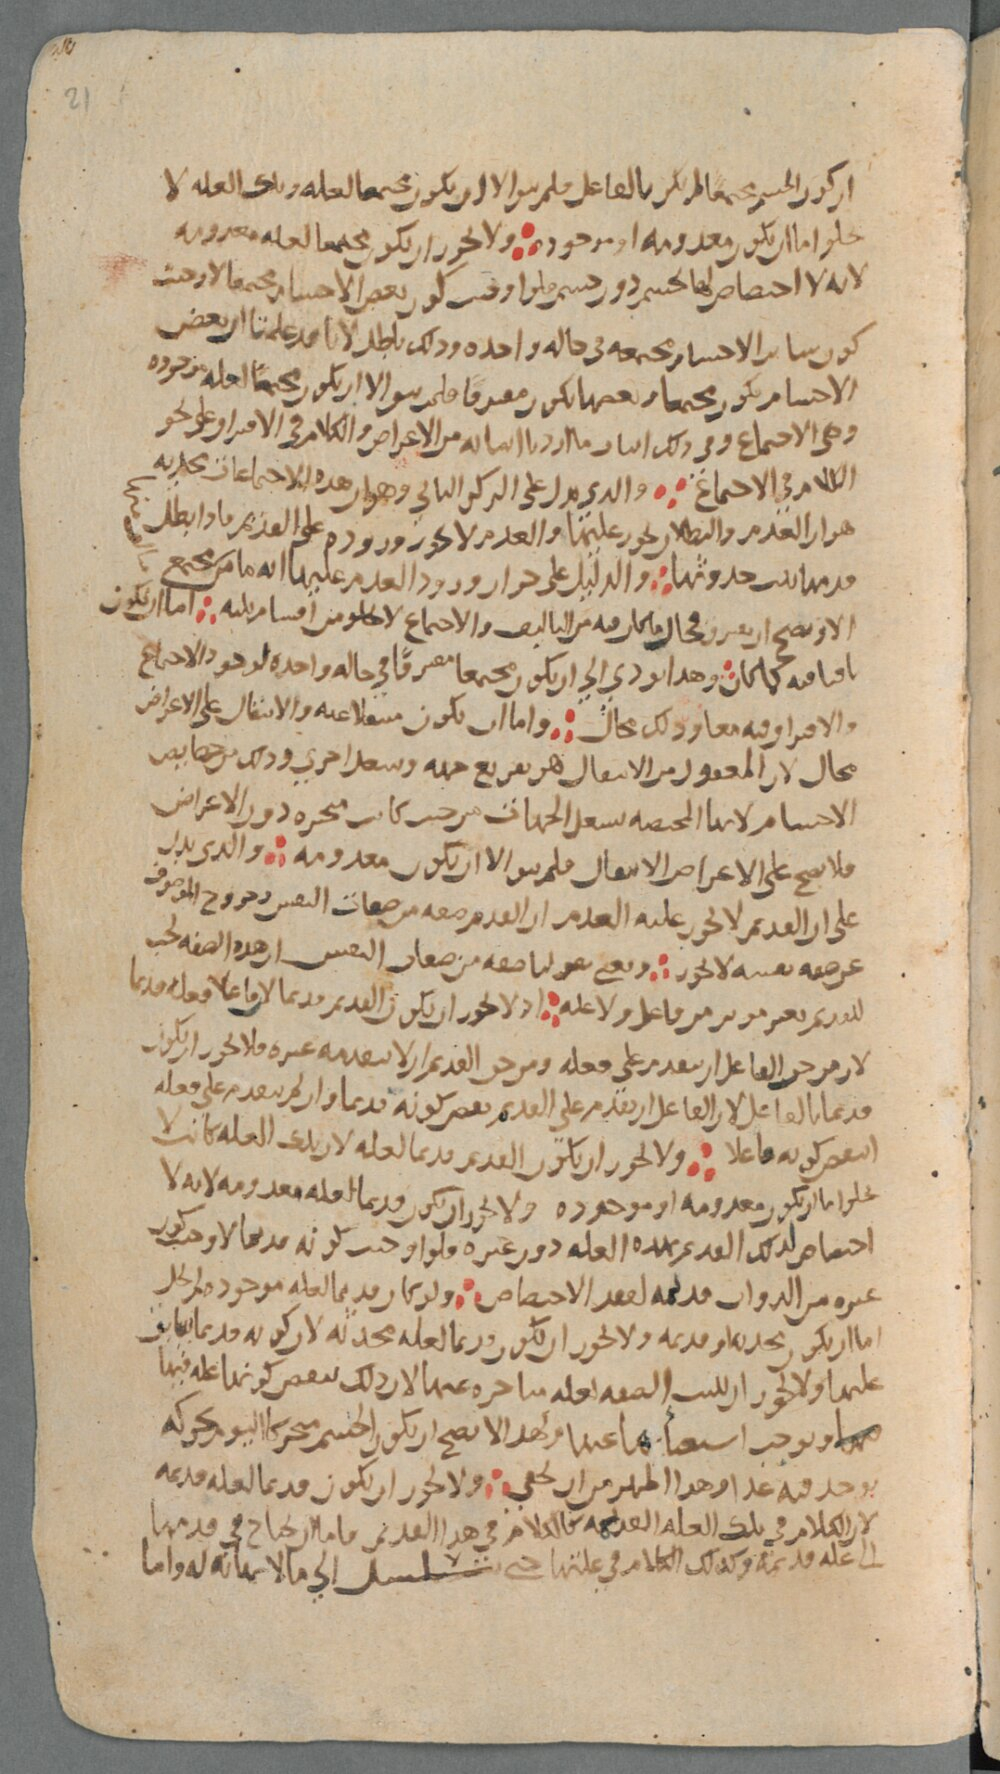 21
ان كون الجسم مجتمعا لم يكن بالفاعل فلم يبق الا ان يكون مجتمعا لعله وتلك العله لا
تخلوا اما ان يكون معدومه او موجوده ولا يجوز ان يكون مجتمعا لعله معدومه
لانه لا اختصاص لها بجسم دون جسم فلو اوجبت كون بعض الاجسام مجتمعا لاوجبت
كون ساير الاجسام مجتمعه في حاله واحده وذلك باطل لانا قد علمنا ان بعض
الاجسام يكون مجتمعا وبعضها يكون مفترقا فلم يبق الا ان يكون مجتمعا لعله موجوده
وهي الاجتماع وفي ذلك اثبات ما اردنا اثباته من الاعراض والكلام في الافتراق على نحو
الكلام في الاجتماع والذي يدل على الركن الثاني وهو ان هذه الاجتماعات محدثه
هو ان العدم والبطلان يجوز عليها والعدم لا يجوز وروده على القديم فاذا بطل
قدمها ثبت حدوثها والدليل على جواز ورود العدم عليها انه ما من مجتمع
الا ويصح ان يفترق فحال ما كان فيه من التاليف والاجتماع لا يخلو من اقسام ثلثه اما ان يكون
باقيا فيه كما كان وهذا يودي الى ان يكون مجتمعا مفترقا في حاله واحده لوجود الاجتماع
والافتراق فيه معا وذلك محال واما ان يكون منتقلا عنه والانتقال على الاعراض
محال لان المعقول من الانتقال هو تفريغ جهه وشغل اخرى وذلك من خصايص
الاجسام لانها المختصه بشغل الجهات من حيث كانت متحيزه دون الاعراض
فلا يصح على الاعراض الانتقال فلم يبق الا ان يكون معدومه والذي يدل
على ان القديم لا يجوز عليه العدم ان القدم صفه من صفات النفس وخروج الموصوف
عن صفه نفسه لا يجوز ونعني بقولنا صفه من صفات النفس ان هذه الصفه تجب
للقديم بغير موثر من فاعل ولا عله اذ لا يجوز ان يكون القديم قديما لان فاعلا فعله قديما
لان من حق الفاعل ان يتقدم على فعله ومن حق القديم ان لا يتقدمه غيره فلا يجوز ان يكون
قديما بالفاعل لان الفاعل ان تقدم على القديم نقض كونه قديما وان لم يتقدم على فعله
انتقض كونه فاعلا ولا يجوز ان يكون القديم قديما لعله لان تلك العله كانت لا
تخلوا اما ان يكون معدومه او موجوده ولا يجوز ان يكون قديما لعله معدومه لانه لا
اختصاص لذلك القديم بهذه العله دون غيره فلو اوجبت كونه قديما لاوجبت كون
غيره من الذوات قديمه لفقد الاختصاص ولو كان قديما لعله موجوده لم تخل
اما ان يكون محدثه او قديمه ولا يجوز ان يكون قديما لعله محدثه لان كونه قديما سابق
عليها ولا يجوز ان تثبت الصفه لعله متاخره عنها لان ذلك ينقض كونها عله فيها
ويوجب استغناها عنها ولهذا لا يصح ان يكون الجسم متحركا اليوم بحركه
يوجد فيه غدا وهذا اظهر من ان يخفى ولا يجوز ان يكون قديما لعله قديمه
لان الكلام في تلك العله القديمه كالكلام في هذا القديم فاما ان يحتاج في قدمها
الى عله قديمه وكذلك الكلام في علتها حتى يتسلسل الى ما لا نهايه له واما